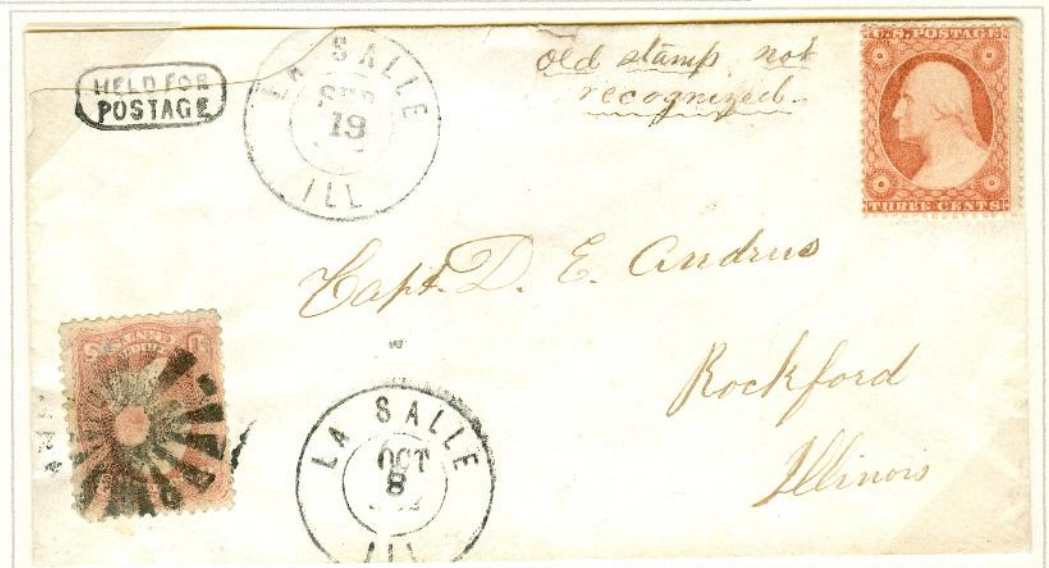 HELD FOR
POSTAGE
LA SALLE
SEP
19
ILL
old stamp not
recognized.
U.S. POSTAGE
THREE CENTS
Capt. D. E. Andrus
Rockford
Illinois
LA SALLE
OCT
8
ILL